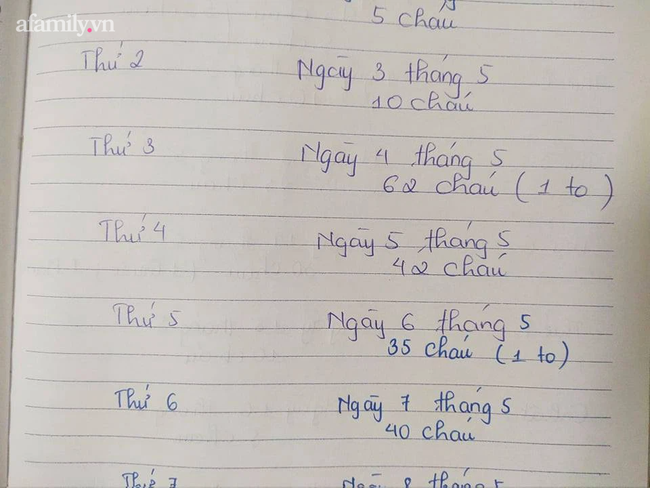 afamily.vn
5 cháu
Thứ 2 Ngày 3 tháng 5
10 cháu
Thứ 3 Ngày 4 tháng 5
62 cháu ( 1 to )
Thứ 4 Ngày 5 tháng 5
42 cháu
Thứ 5 Ngày 6 tháng 5
35 cháu ( 1 to )
Thứ 6 Ngày 7 tháng 5
40 cháu
Thứ 7 Ngày 8 tháng 5